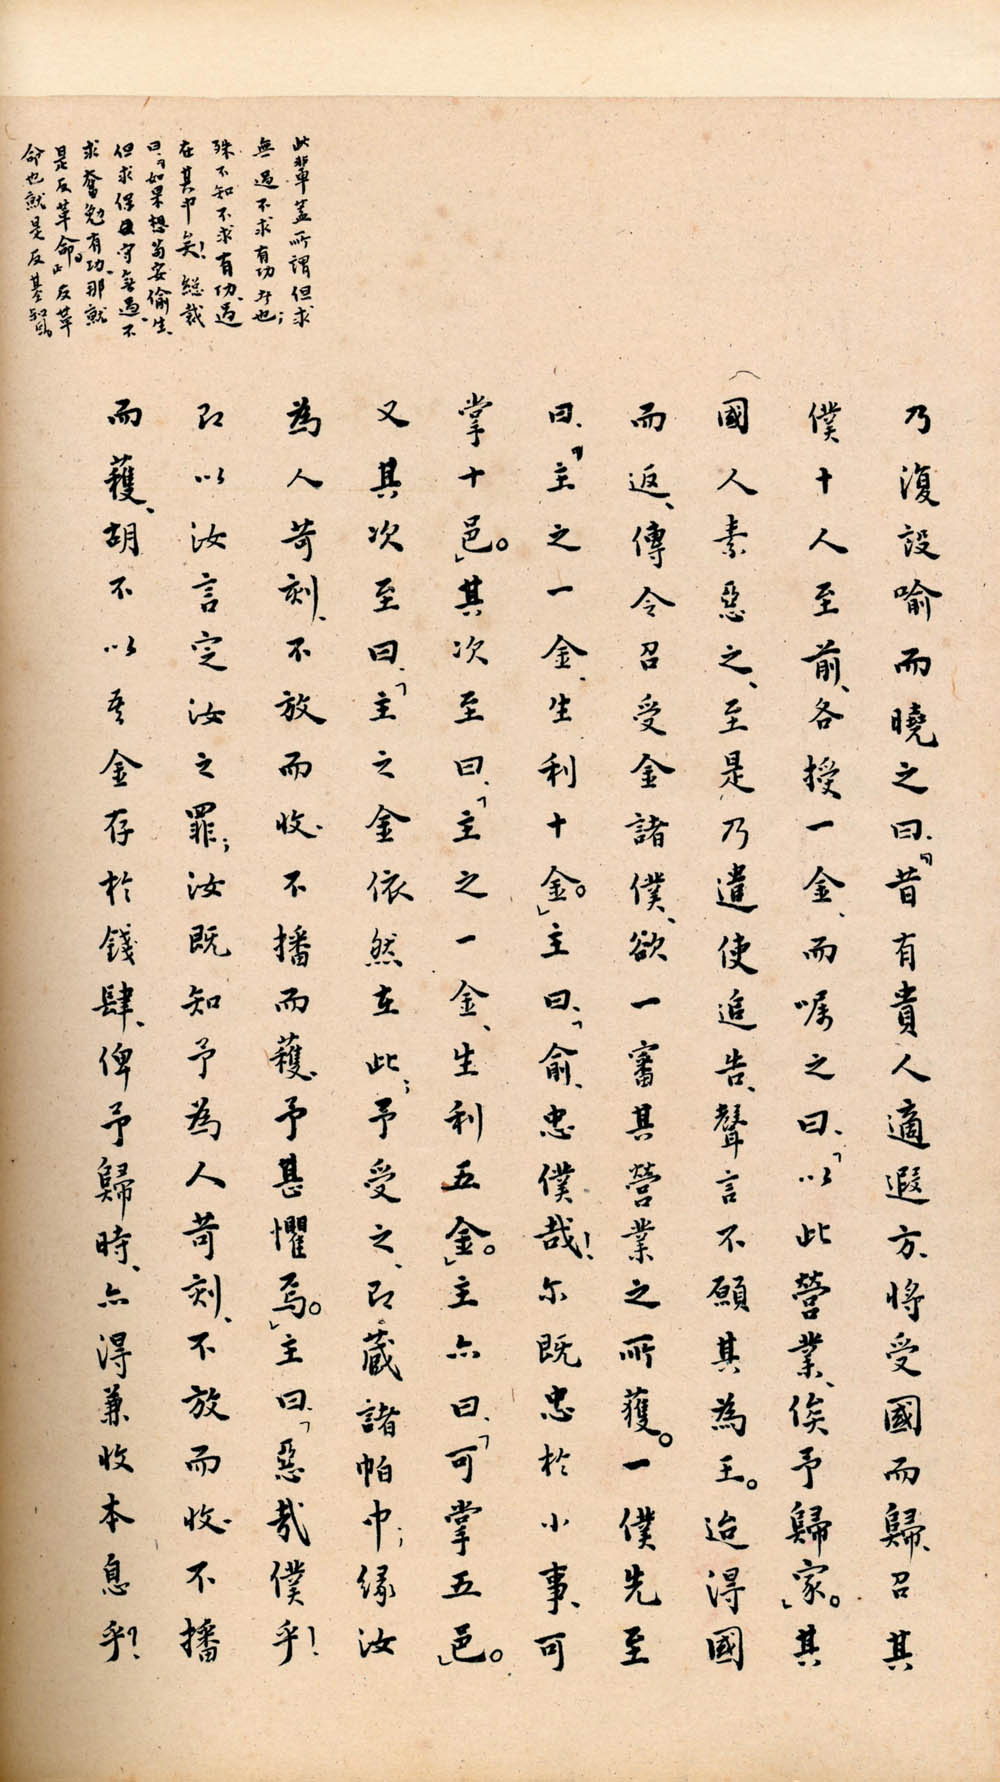 此輩蓋所謂但求
無過不求有功者也；
殊不知不求有功、過
在其中矣！總裁
曰、「如果想苟安偷生、
但求保守無過、不
求奮勉有功、那就
是反革命。此反革
命也就是反基督。
乃復設喻而曉之曰、「昔有貴人適遐方、將受國而歸、召其
僕十人至前、各授一金、而囑之曰、「以此營業、俟予歸家。」其
國人素惡之、至是、乃遣使追告、聲言不願其為王。迨得國
而返、傳令召受金諸僕、欲一審其營業之所獲。一僕先至
曰、「主之一金、生利十金。」主曰、「俞、忠僕哉！尔既忠於小事、可
掌十邑。」其次至曰、「主之一金、生利五金。」主亦曰、「可掌五邑。」
又其次至曰、「主之金依然在此；予受之、即藏諸帕中；緣汝
為人苛刻、不放而收、不播而穫、予甚懼焉。」主曰、「惡哉僕乎！
即以汝言定汝之罪；汝既知予為人苛刻、不放而收、不播
而穫、胡不以吾金存於錢肆、俾予歸時、亦得兼收本息乎？